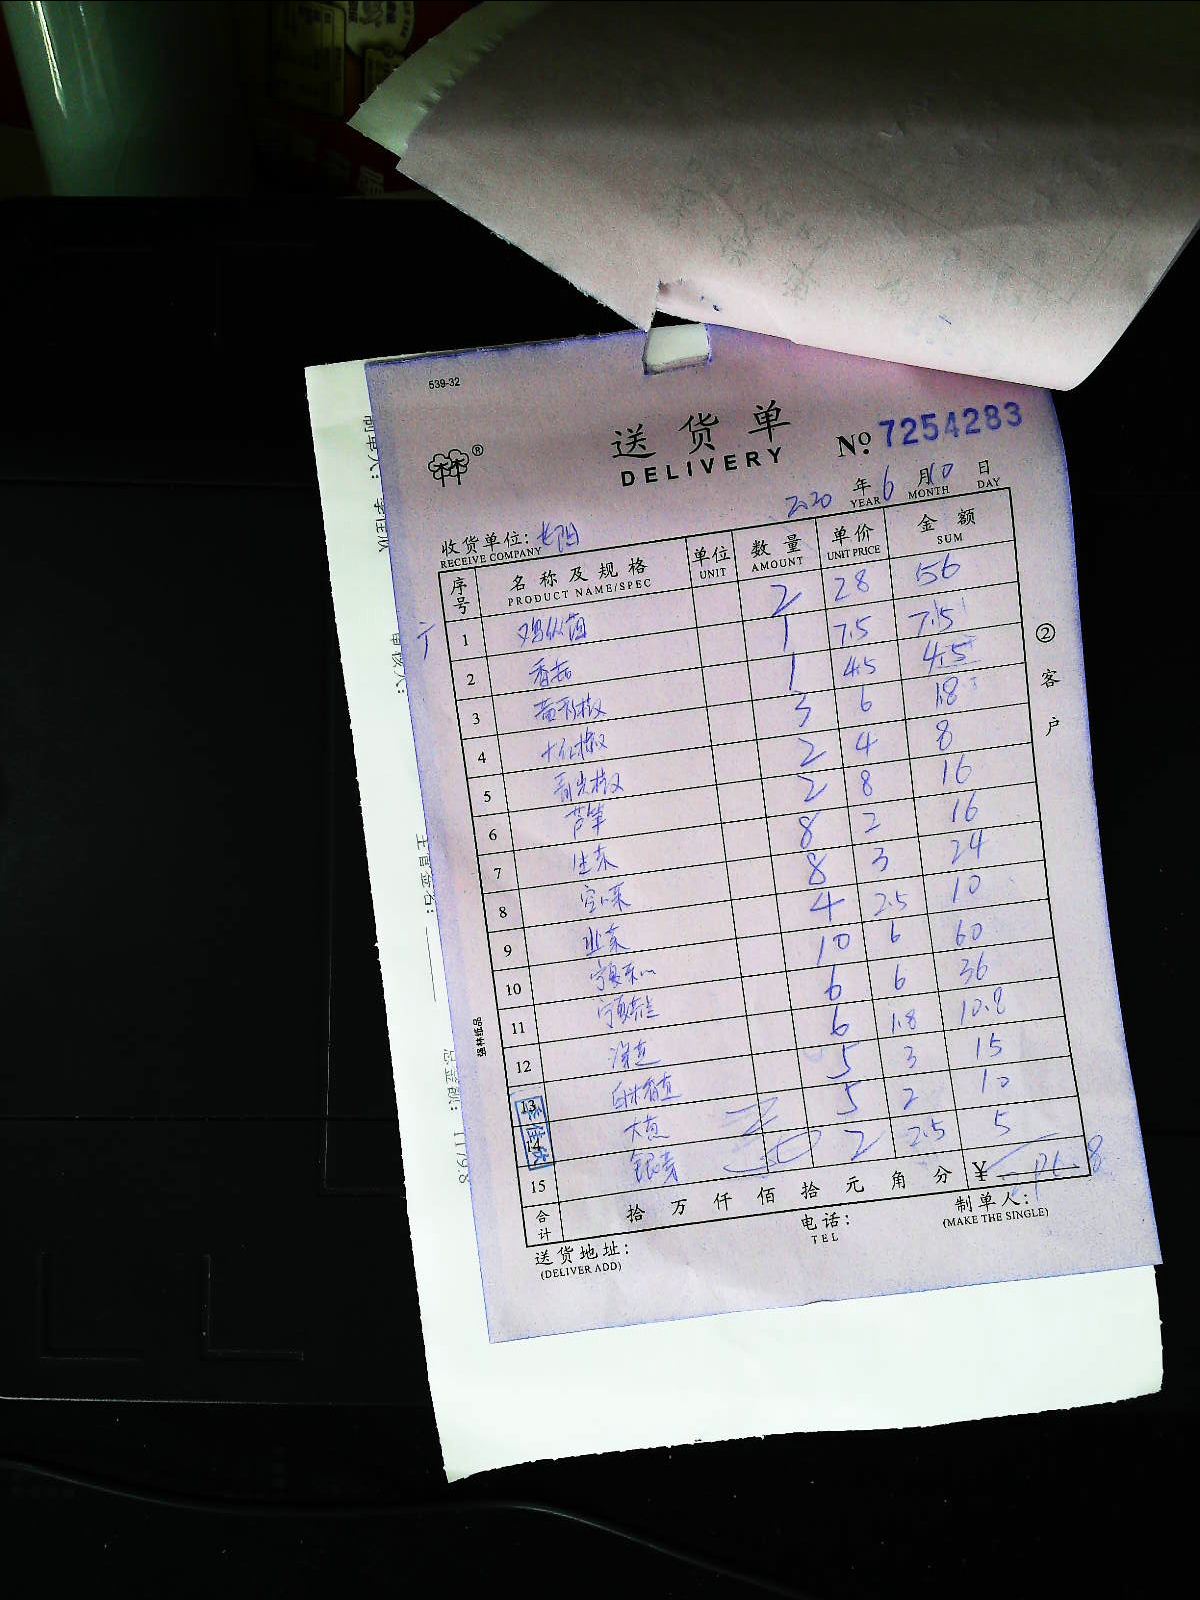 539-32
送货单
DELIVERY
No. 7254283
2020 年 6 月 10 日
YEAR MONTH DAY
收货单位: 长阳
RECEIVE COMPANY
序号 名称及规格 单位 数量 单价 金额
PRODUCT NAME/SPEC UNIT AMOUNT UNIT PRICE SUM
1 2 28 56
2 香菇 1 7.5 7.5
3 1 4.5 4.5
4 3 6 18
5 青尖椒 2 4 8
6 芦笋 2 8 16
7 生菜 8 2 16
8 8 3 24
9 韭菜 4 2.5 10
10 宁夏菜心 10 6 60
11 6 6 36
12 6 1.8 10.8
13 5 3 15
14 大葱 5 2 10
15 银芽 2 2.5 5
合计 拾 万 仟 佰 拾 元 角 分 ¥
送货地址:
(DELIVER ADD)
电话:
TEL
制单人:
(MAKE THE SINGLE)
②客户
李佳欣
制单人: 李佳欣
审核人:
主管签名:
总金额: 1179.8